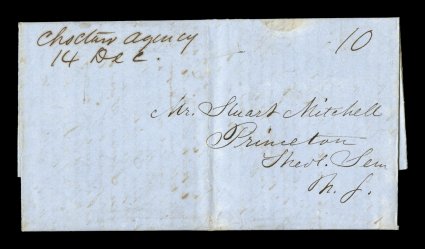 Choctaw Agency
14 Dec.
10
Mr. Stuart Mitchell
Princeton
Theol. Sem
N. J.